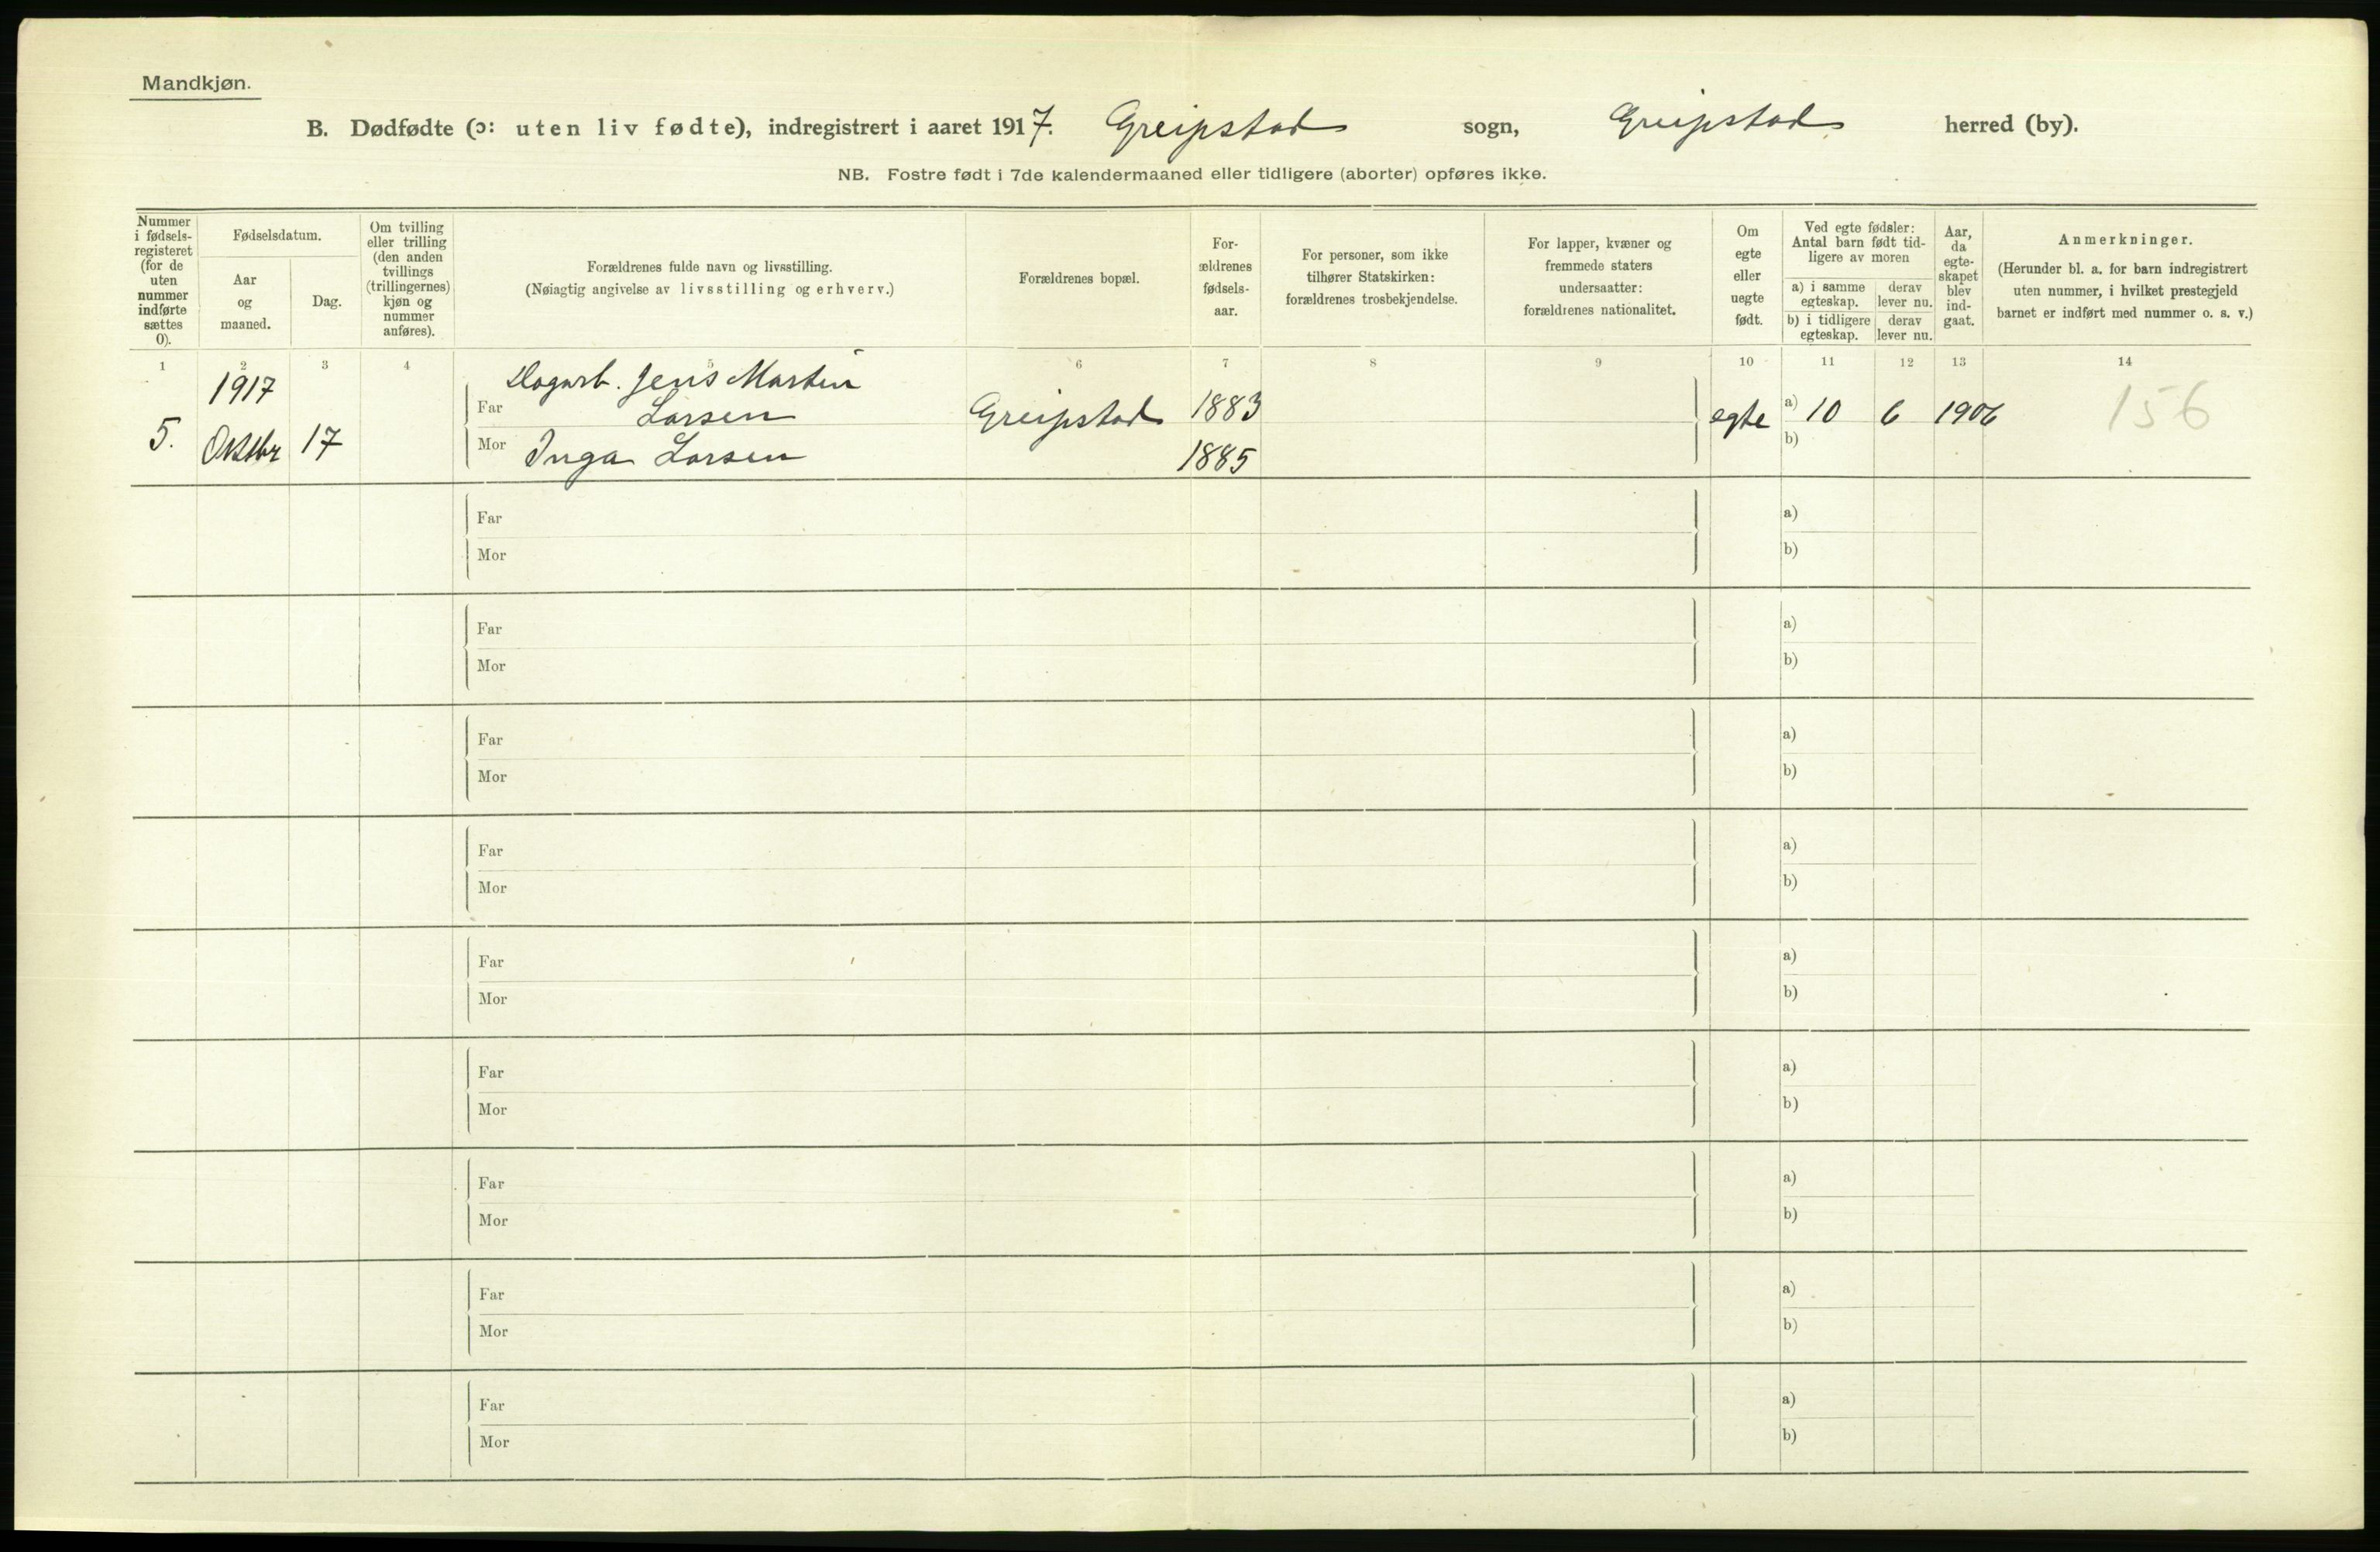 Mandkjøn.
B. Dødfødte (ɔ: uten liv fødte), indregistrert i aaret 1917. Greipstad sogn, Greipstad herred (by).
NB. Fostre født i 7de kalendermaaned eller tidligere (aborter) opføres ikke.
Nummer
i fødsels-
registeret
(for de
uten
nummer
indførte
sættes
0).
Fødselsdatum.
Aar
og
maaned.
Dag.
Om tvilling
eller trilling
(den anden
tvillings
(trillingernes)
kjøn og
nummer
anføres).
Forældrenes fulde navn og livsstilling.
(Nøiagtig angivelse av livsstilling og erhverv.)
Forældrenes bopæl.
For-
ældrenes
fødsels-
aar.
For personer, som ikke
tilhører Statskirken:
forældrenes trosbekjendelse.
For lapper, kvæner og
fremmede staters
undersaatter:
forældrenes nationalitet.
Om
egte
eller
uegte
født.
Ved egte fødsler:
Antal barn født tid-
ligere av moren
a) i samme
egteskap.
derav
lever nu.
b) i tidligere
egteskap.
derav
lever nu.
Aar,
da
egte-
skapet
blev
ind-
gaat.
Anmerkninger.
(Herunder bl. a. for barn indregistrert
uten nummer, i hvilket prestegjeld
barnet er indført med nummer o. s. v.)
1 2 3 4 5 6 7 8 9 10 11 12 13 14
1917 Dagarb. Jens Martin
Far Larsen Greipstad 1883 egte a) 10 6 1906 156
5. Oktbr 17
Mor Inga Larsen 1885 b)
Far a)
Mor b)
Far a)
Mor b)
Far a)
Mor b)
Far a)
Mor b)
Far a)
Mor b)
Far a)
Mor b)
Far a)
Mor b)
Far a)
Mor b)
Far a)
Mor b)